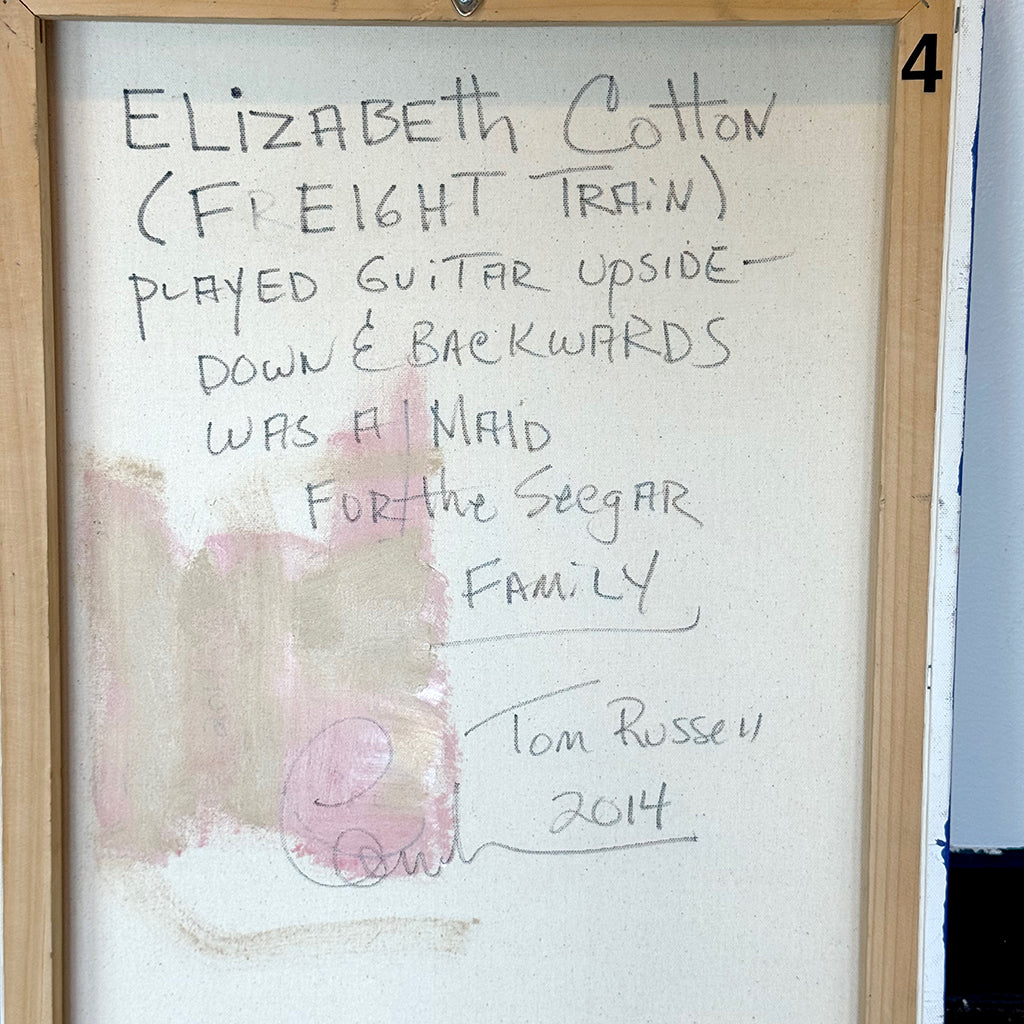 4
ELiZABEth Cotton
(FREIGHT TRAiN)
PLAYED GUiTAR UpSiDE-
DOWN & BACKWARDS
WAS A MAiD
FOR the SeegAR
FAMiLY
Tom Russell
2014